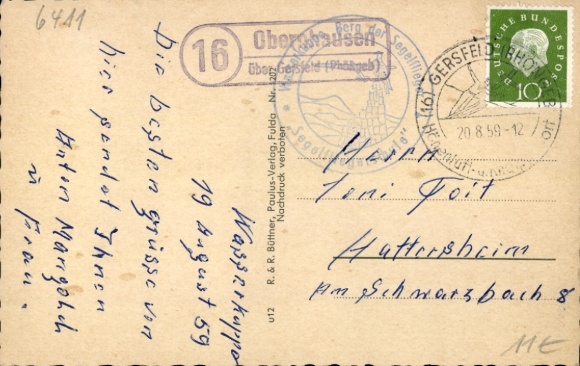 6411
16 Obernhausen
über Gersfeld (Rhöngeb)
Berg der Segelflieger
Segelfliegerschule
(16) GERSFELD (RHÖN)
20.8.59-12
DEUTSCHE BUNDESPOST
10
Wasserkuppe
19 August 59
Die besten Grüsse von
hier sendet Ihnen
Anton
u Frau.
R. & R. Büttner, Paulus-Verlag, Fulda Nr. 1207
Nachdruck verboten
u12
Herrn
Toni
Hattersheim
Am Schwarzbach 8
11E